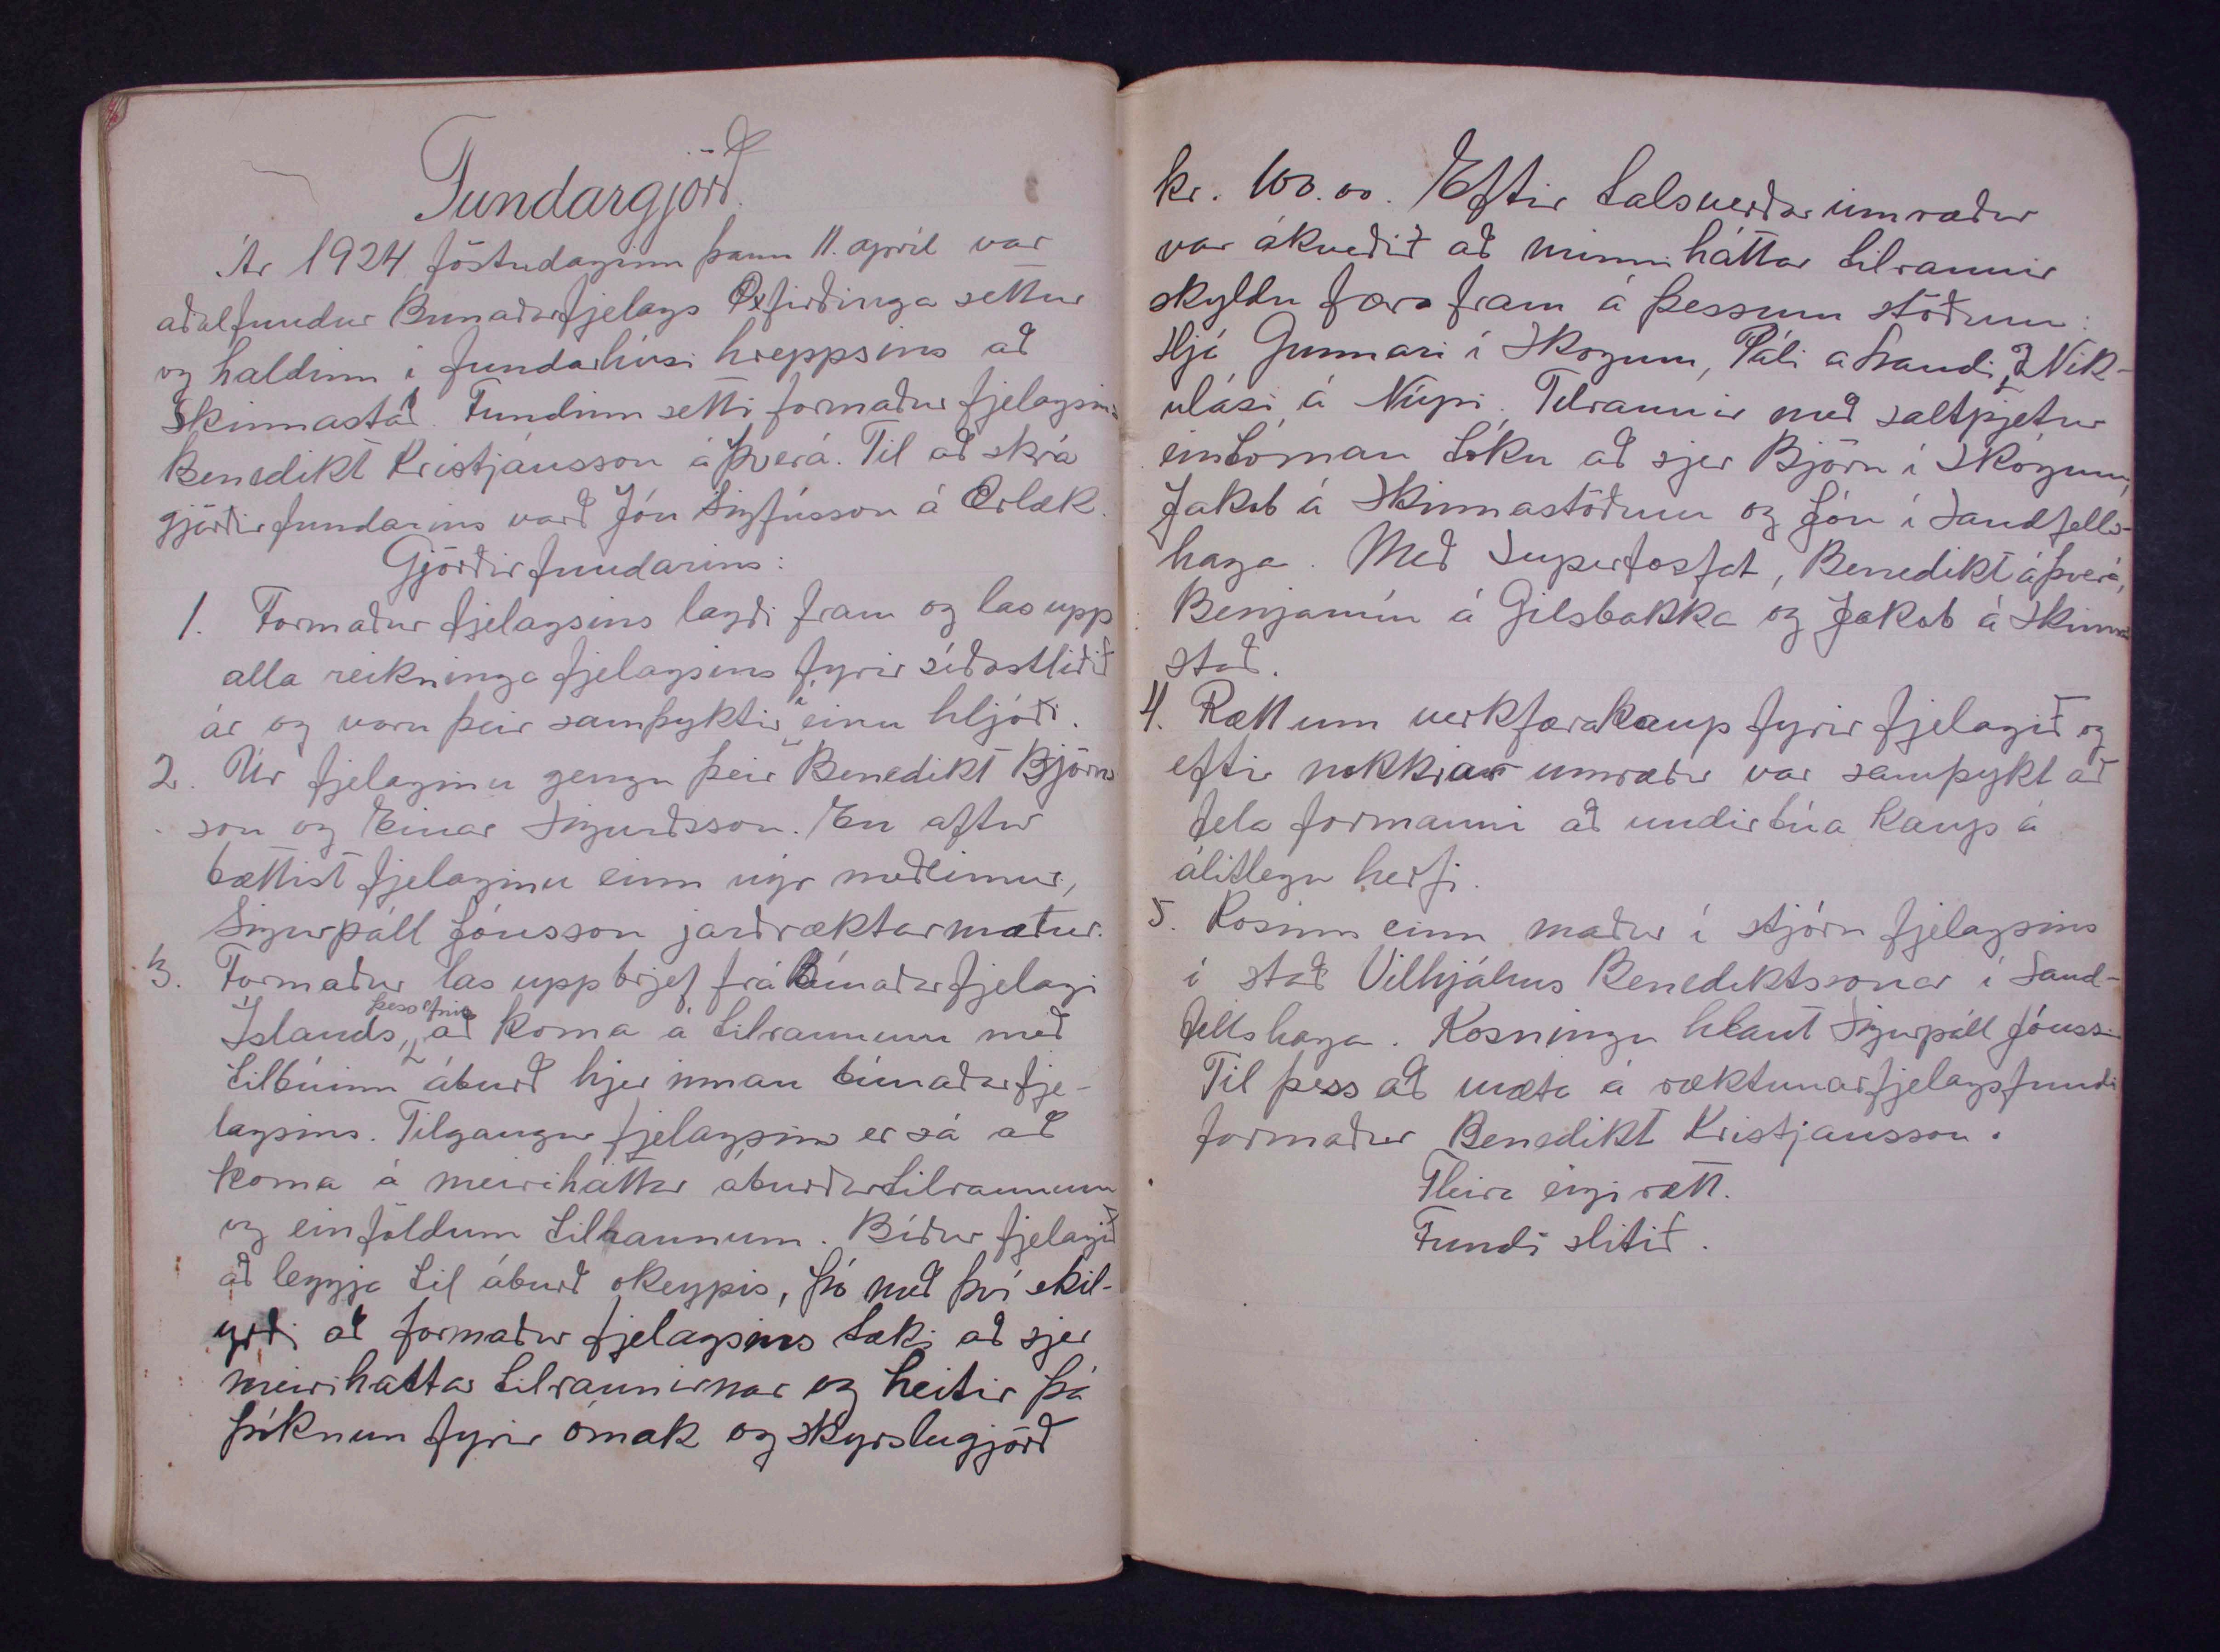 Fundargjörð.
Ár 1924, föstudaginn þann 11. apríl var
aðalfundur Búnaðarfjelags Öxfirðinga settur
og haldinn í fundarhúsi hreppsins að
Skinnastað. Fundinn setti formaður fjelagsins
Benedikt Kristjánsson á Þverá. Til að skrá
gjörðir fundarins varð Jón Sigfússon á Ærlæk.
Gjörðir fundarins:
1. Formaður fjelagsins lagði fram og las upp
alla reikninga fjelagsins fyrir síðastliðið
ár og voru þeir samþyktir í einu hljóði.
2. Úr fjelaginu gengu þeir Benedikt Björns
son og Einar Sigurðsson. En aftur
bættist fjelaginu einn nýr meðlimur,
Sigurpáll Jónsson jarðræktarmaður.
3. Formaður las upp brjef frá Búnaðarfjelagi
Íslands, þess efnis að koma á tilraunum með
tilbúinn áburð hjer innan búnaðarfje-
lagsins. Tilgangur fjelagsins er sá að
koma á meiriháttar áburðartilraunum
og einföldum tilraunum. Býður fjelagið
að leggja til áburð ókeypis, þó með því skil-
yrði að formaður fjelagsins taki að sjer
meiriháttar tilraunirnar og heitir þá
þóknun fyrir ómak og skyrslugjörð
kr. 100.00. Eftir talsverðar umræður
var ákveðið að minniháttar tilraunir
skyldu fara fram á þessum stöðum:
Hjá Gunnari í Skógum, Páli á Sandi, & Nik-
ulási á Núpi. Tilraunir með saltpjetur
eintóman tóku að sjer Björn í Skógum,
Jakob á Skinnastöðum og Jón í Sandfells-
haga. Með Superfosfat, Benedikt á Þverá,
Benjamín á Gilsbakka og Jakob á Skinna
stað.
4. Rætt um verkfærakaup fyrir fjelagið og
eftir nokkrar umræður var samþykt að
fela formanni að undirbúa kaup á
álitlegu herfi.
5. Kosinn einn maður í stjórn fjelagsins
í stað Vilhjálms Benediktssonar í Sand-
fellshaga. Kosningu hlaut Sigurpáll Jónsson
Til þess að mæta á ræktunarfjelagsfundi
formaður Benedikt Kristjansson.
Fleira eigi rætt.
Fundi slitið.